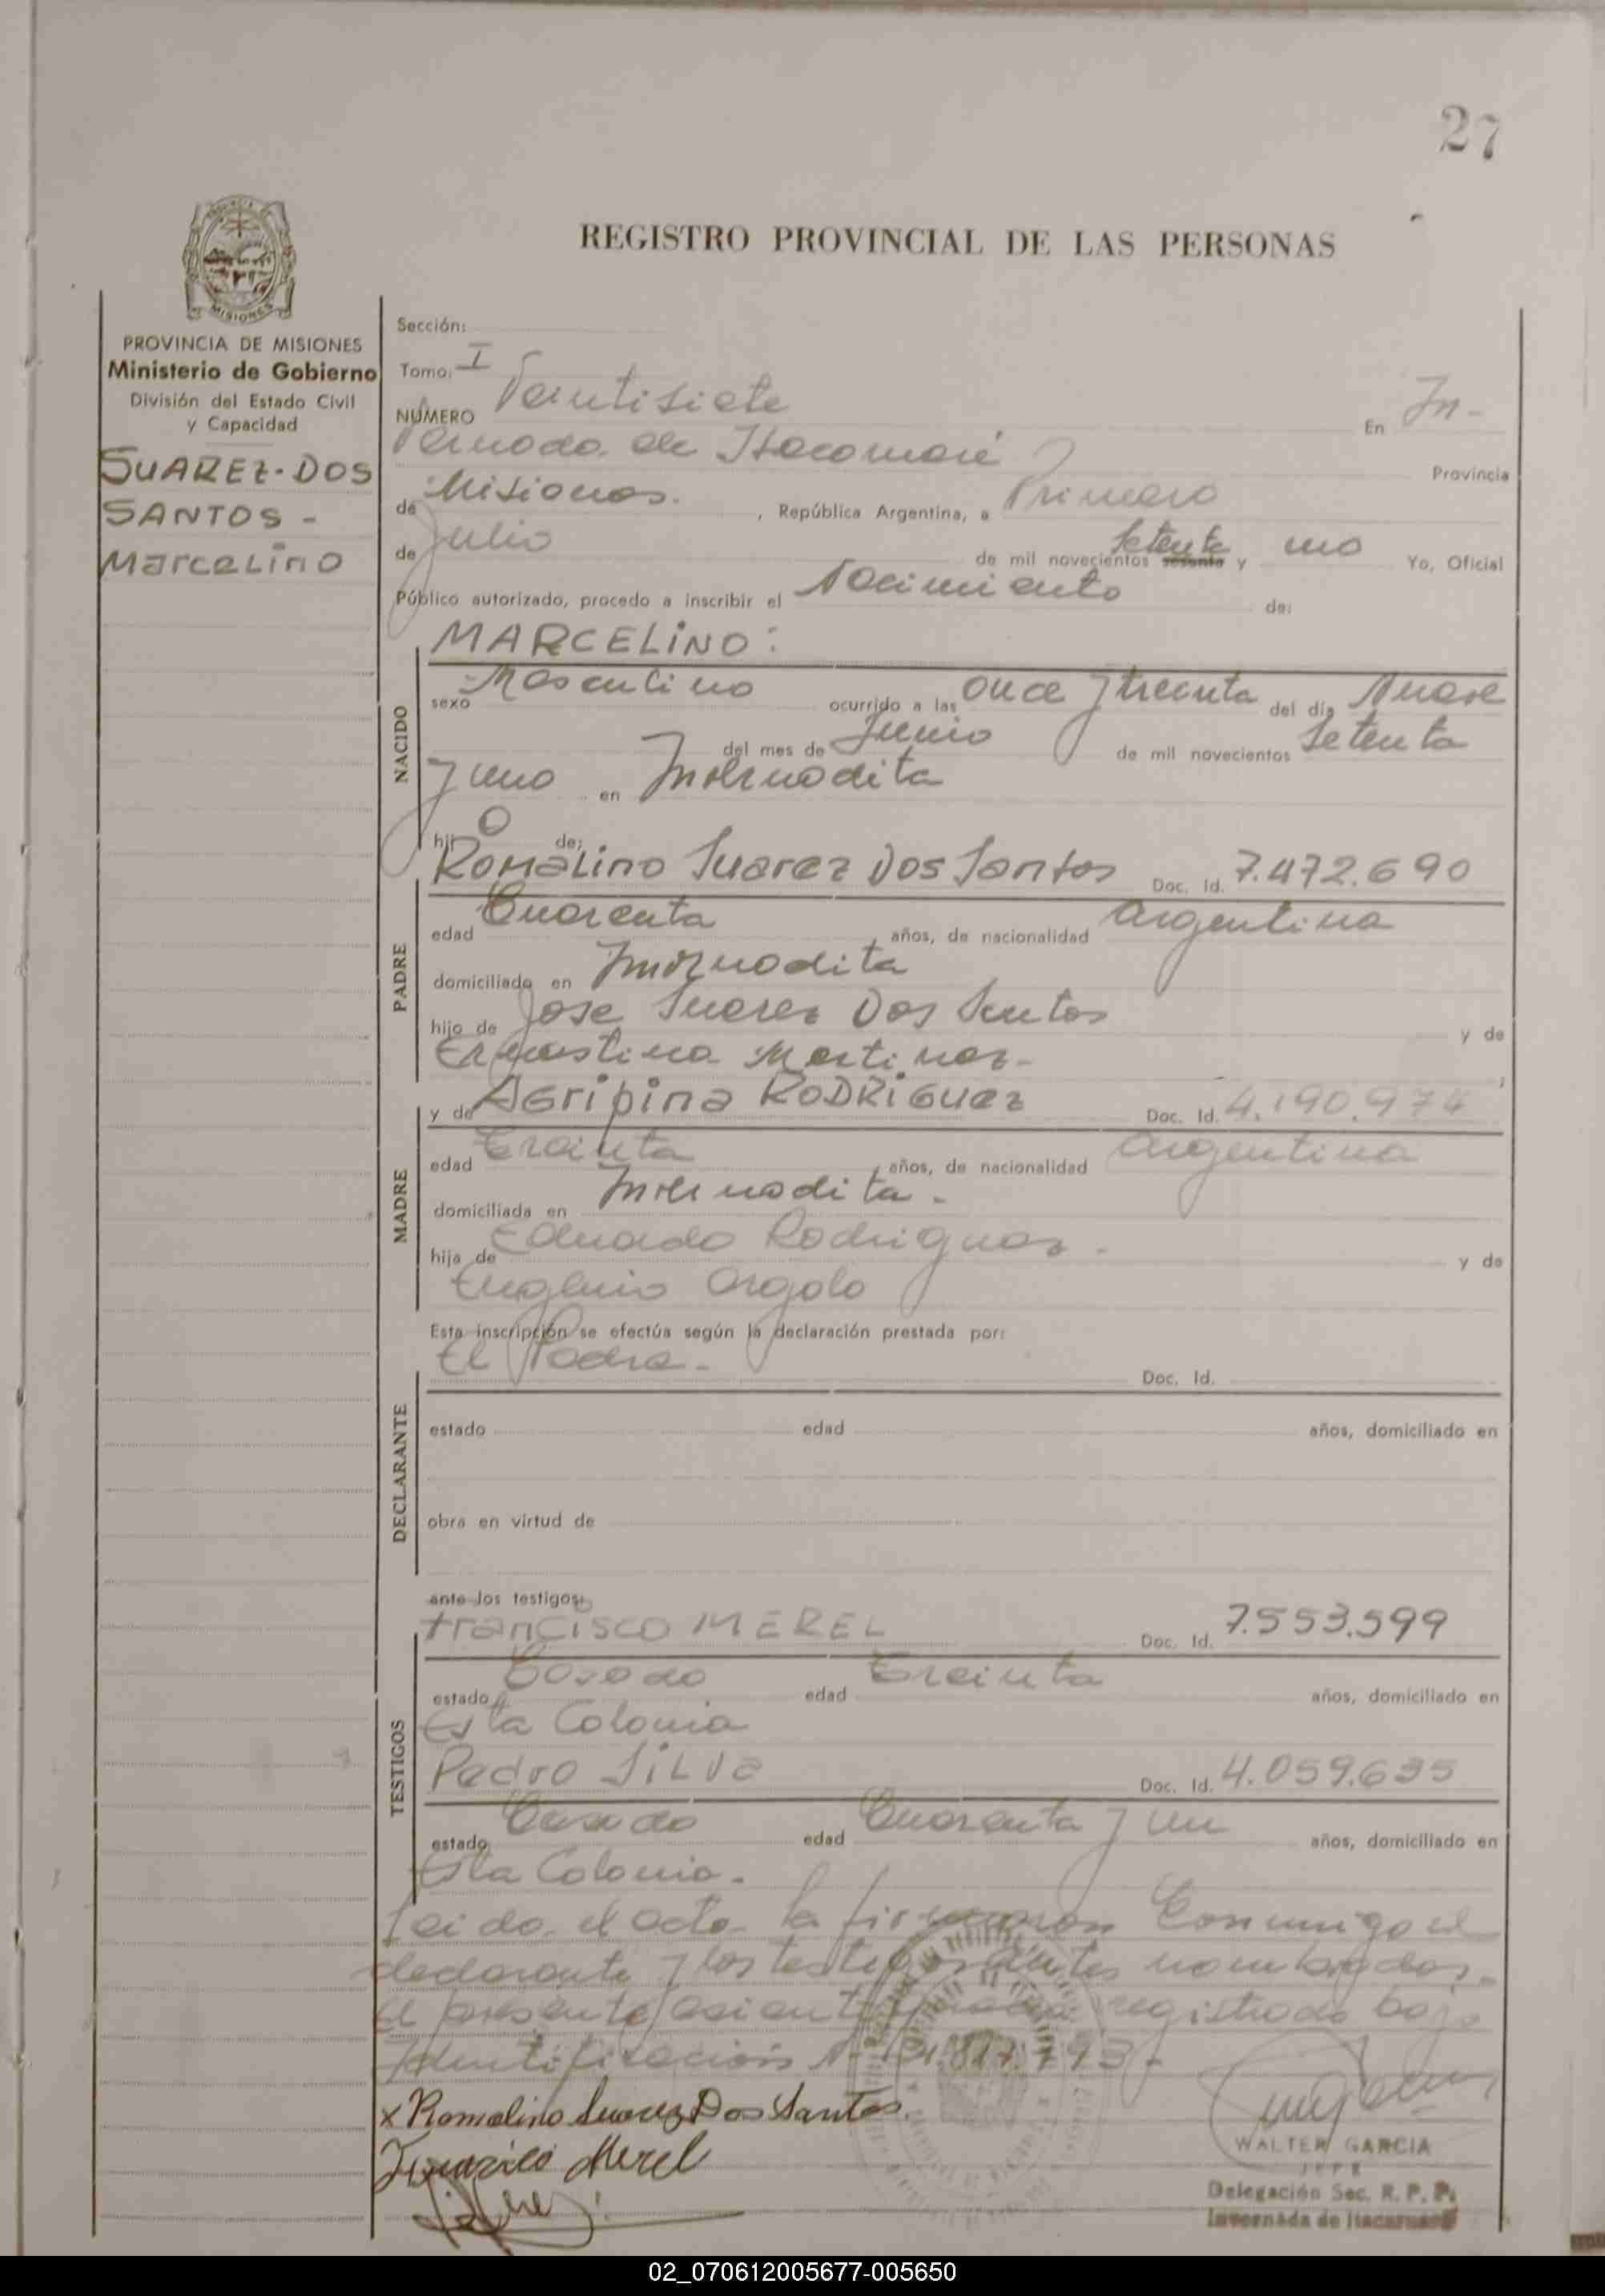 27
REGISTRO PROVINCIAL DE LAS PERSONAS
MISIONES
PROVINCIA DE MISIONES
Ministerio de Gobierno
División del Estado Civil
y Capacidad
SUAREZ-DOS
SANTOS -
Marcelino
Sección:
Tomo: I
NÚMERO Veintisiete En In-
vernada de Itacaruaré Provincia
de Misiones. , República Argentina, a Primero
de Julio de mil novecientos setenta y uno Yo, Oficial
Público autorizado, procedo a inscribir el Nacimiento de:
MARCELINO:
NACIDO
sexo Masculino ocurrido a las once y treinta del día Nueve
del mes de Junio de mil novecientos setenta
y uno en Invernadita
hijo de:
PADRE
Romalino Suarez Dos Santos Doc. Id. 7.472.690
edad Cuarenta años, de nacionalidad Argentina
domiciliado en Invernadita
hijo de Jose Suarez Dos Santos y de
Ernestina Martinez-
MADRE
y de Agripina RODRIGUEZ Doc. Id. 4.190.974
edad Treinta años, de nacionalidad Argentina
domiciliada en Invernadita.
hija de Eduardo Rodriguez. y de
Eugenia
Esta inscripción se efectúa según la declaración prestada por:
El Padre. Doc. Id.
DECLARANTE
estado edad años, domiciliado en
obra en virtud de
ante los testigos:
TESTIGOS
Francisco MEREL Doc. Id. 7.553.599
estado Casado edad Treinta años, domiciliado en
Esta Colonia
Pedro SILVA Doc. Id. 4.059.635
estado Casado edad Cuarenta y un años, domiciliado en
Esta Colonia.
Leida el acta la firmaron conmigo el
declarante y los testigos antes nombrados.
El presente asiento queda registrado bajo
Identificacion
x Romalino Suarez Dos Santos
Francisco Merel
WALTER GARCIA
JEFE
Delegación Sec. R. P. P.
Invernada de Itacaruaré
02_070612005677-005650